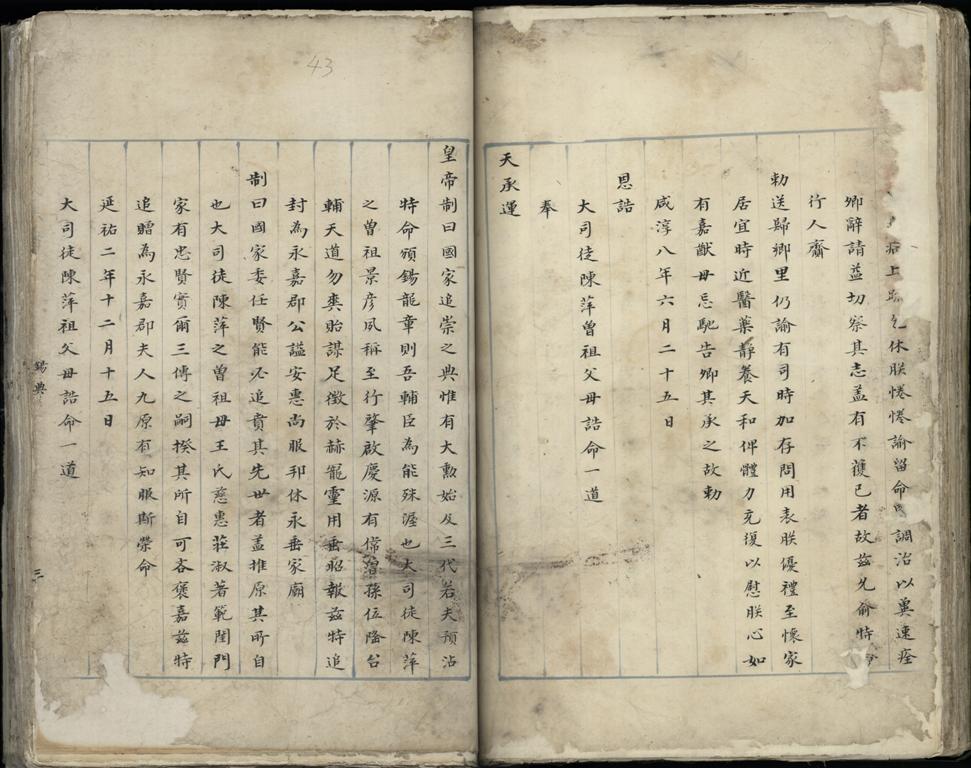 疏乞休朕惓惓諭留命調治以冀速痊
卿辭請益切察其志盖有不獲已者故兹允俞特
行人齋
勅送歸鄉里仍諭有司時加存問用表朕優禮至懷家
居宜時近醫藥靜養天和俾體力充復以慰朕心如
有嘉猷毋忘馳告卿其承之故勅
咸淳八年六月二十五日
恩誥
大司徒陳萍曾祖父母誥命一道
奉
天承運
皇帝制曰國家追崇之典惟有大勲始及三代若夫預沾
特命頒錫龍章則吾輔臣為能殊渥也大司徒陳萍
之曾祖景彦夙稱至行肇啟慶源有偹曾孫位隆台
輔天道勿爽貽謀足徴於赫寵靈用垂昭報兹特追
封為永嘉郡公謚安惠尚服邦休永垂家廟
制曰國家委任賢能必追賁其先世者盖推原其所自
也大司徒陳萍之曾祖母王氏慈惠莊淑著範閨門
家有忠賢實爾三傳之嗣揆其所自可吝褒嘉兹特
追贈為永嘉郡夫人九原有知服斯榮命
延祐二年十二月十五日
大司徒陳萍祖父母誥命一道
錫典
三
43